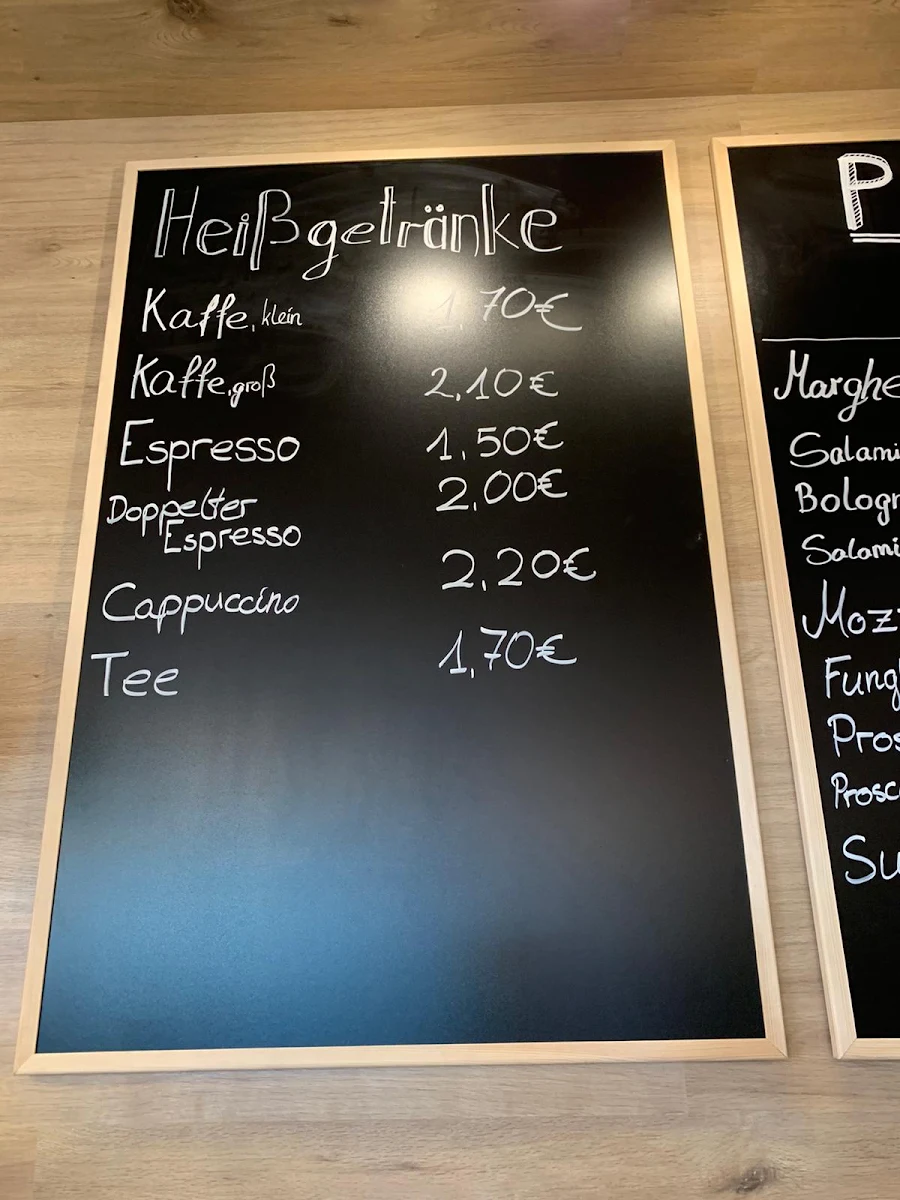 Heißgetränke
Kaffe, klein 1,70€
Kaffe, groß 2,10€
Espresso 1,50€
Doppelter 2,00€
Espresso
Cappuccino 2,20€
Tee 1,70€
P
Marghe
Salami
Bologn
Salami
Moz
Fung
Pros
Prosc
Su